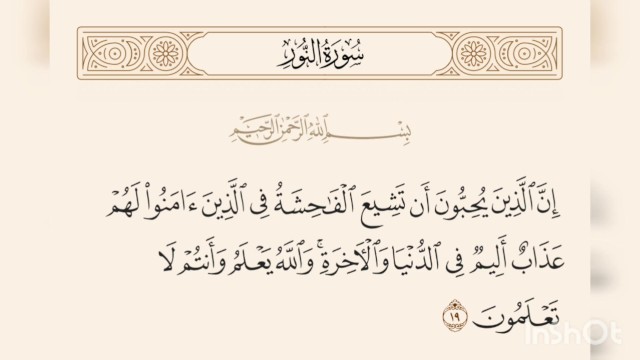 سُورَةُ النُّورِ
بِسْمِ اللَّهِ الرَّحْمَٰنِ الرَّحِيمِ
إِنَّ ٱلَّذِينَ يُحِبُّونَ أَن تَشِيعَ ٱلْفَٰحِشَةُ فِى ٱلَّذِينَ ءَامَنُوا۟ لَهُمْ
عَذَابٌ أَلِيمٌ فِى ٱلدُّنْيَا وَٱلْءَاخِرَةِ ۚ وَٱللَّهُ يَعْلَمُ وَأَنتُمْ لَا
تَعْلَمُونَ ١٩
InShOt